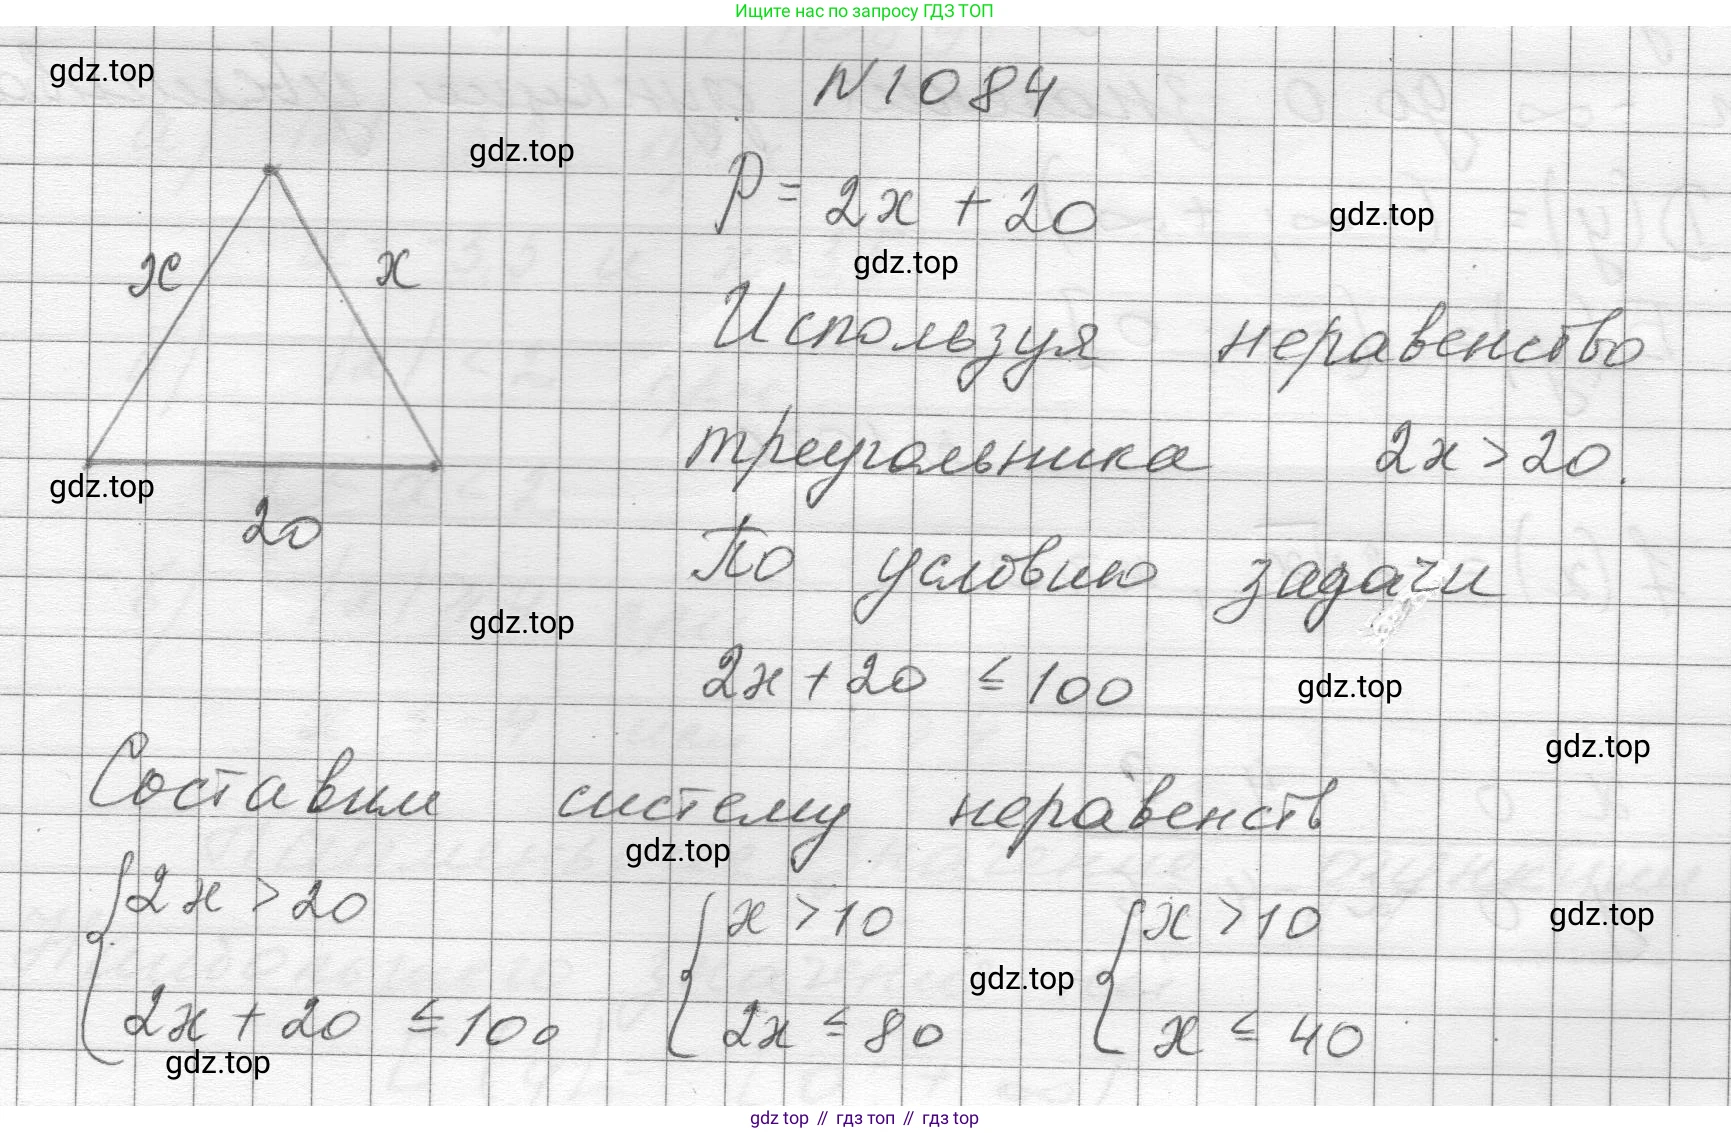 Ищите нас по запросу ГДЗ ТОП
gdz.top
N1084
gdz.top
P = 2x + 20
gdz.top
x x
gdz.top
Используя неравенство
треугольника 2x > 20.
gdz.top
20
По условию задачи
gdz.top
2x + 20 ≤ 100
gdz.top
gdz.top
Составим систему неравенств
gdz.top
{2x > 20 {x > 10 {x > 10
gdz.top
gdz.top
2x + 20 ≤ 100 2x ≤ 80 x ≤ 40
gdz.top
gdz top // гдз топ // gdz top